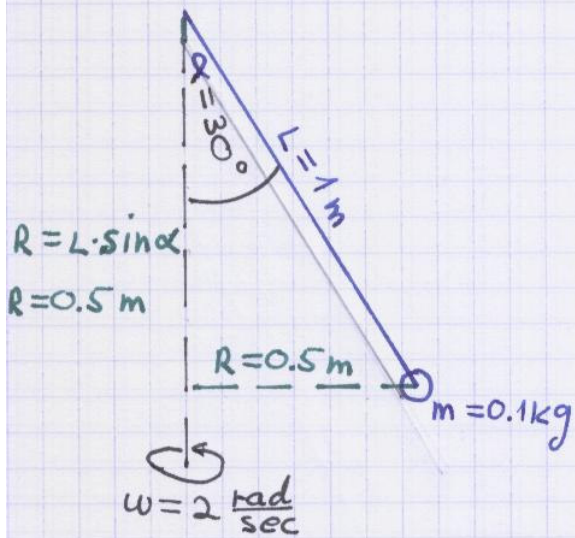 α = 30°
L = 1 m
R = L·sinα
R = 0.5 m
R = 0.5 m
m = 0.1 kg
ω = 2 rad/sec